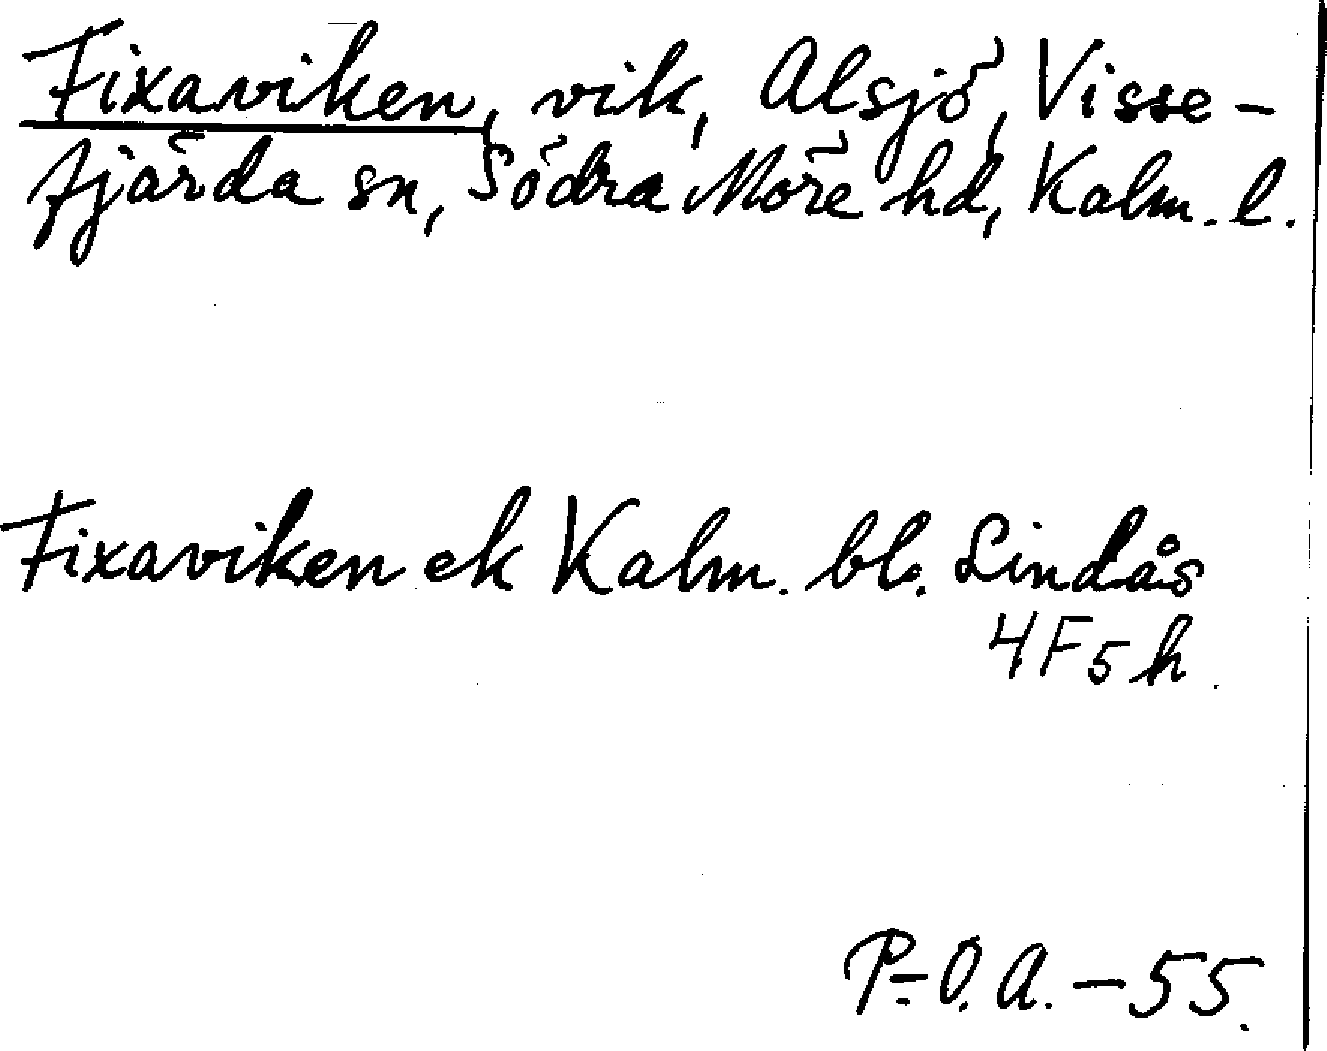 Fixaviken, vik, Alsjö, Visse-
fjärda sn, Södra Möre hd, Kalm. l.
Fixaviken ek Kalm. bl. Lindås
4F5h.
P-O. A. - 55.